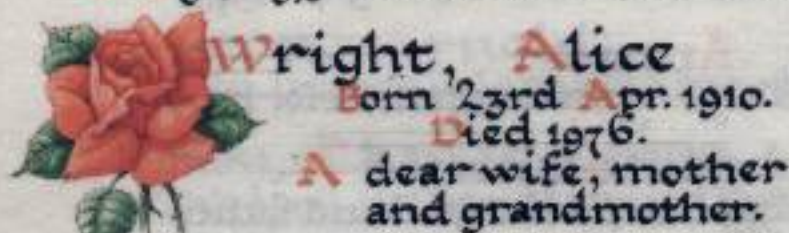 Wright, Alice
Born 23rd Apr. 1910.
Died 1976.
A dear wife, mother
and grandmother.